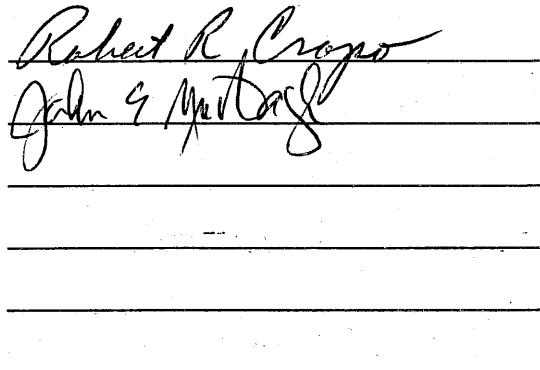 Robert R. Crapo
John E Murtagh